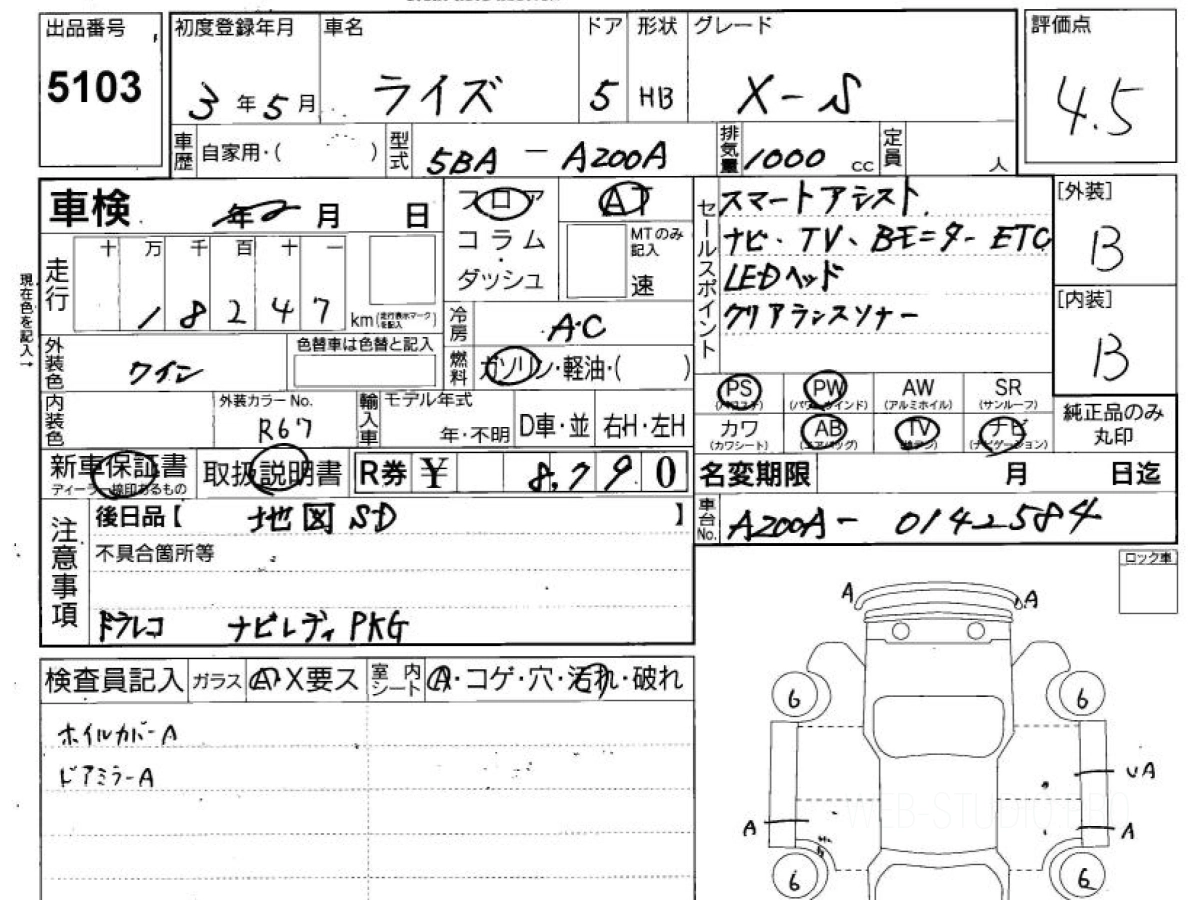 出品番号
5103
初度登録年月
3年5月
車名
ライズ
ドア
5
形状
HB
グレード
X-S
評価点
4.5
車歴
自家用・( )
型式
5BA - A200A
排気量
1000 cc
定員
人
車検
年 月 日
フロア
コラム
・
ダッシュ
AT
MTのみ
記入
速
セールスポイント
スマートアシスト
ナビ・TV、BモニターETC
LEDヘッド
クリアランスソナー
[外装]
B
[内装]
B
現在色を記入→
走行
十 万 千 百 十 一
1 8 2 4 7
km(走行表示マークを記入)
冷房
AC
外装色
ワイン
色替車は色替と記入
燃料
ガソリン・軽油・( )
内装色
外装カラーNo.
R67
輸入車
モデル年式
年・不明
D車・並
右H・左H
PS
(パワステ)
PW
(パワーウインド)
AW
(アルミホイル)
SR
(サンルーフ)
カワ
(カワシート)
AB
(エアバッグ)
TV
ナビ
(ナビゲーション)
純正品のみ
丸印
新車保証書
ディーラー捺印あるもの
取扱説明書
R券 ¥ 8,790
名変期限 月 日迄
車台No.
A200A - 0142584
注意事項
後日品【 地図SD 】
不具合箇所等
ドラレコ ナビレディPKG
ロック車
検査員記入
ガラス
A・X要ス
室内シート
A・コゲ・穴・汚れ・破れ
ホイルカバーA
ドアミラーA
A A
6 6
UA
A A
6 6
WEB-STUDIO.PRO